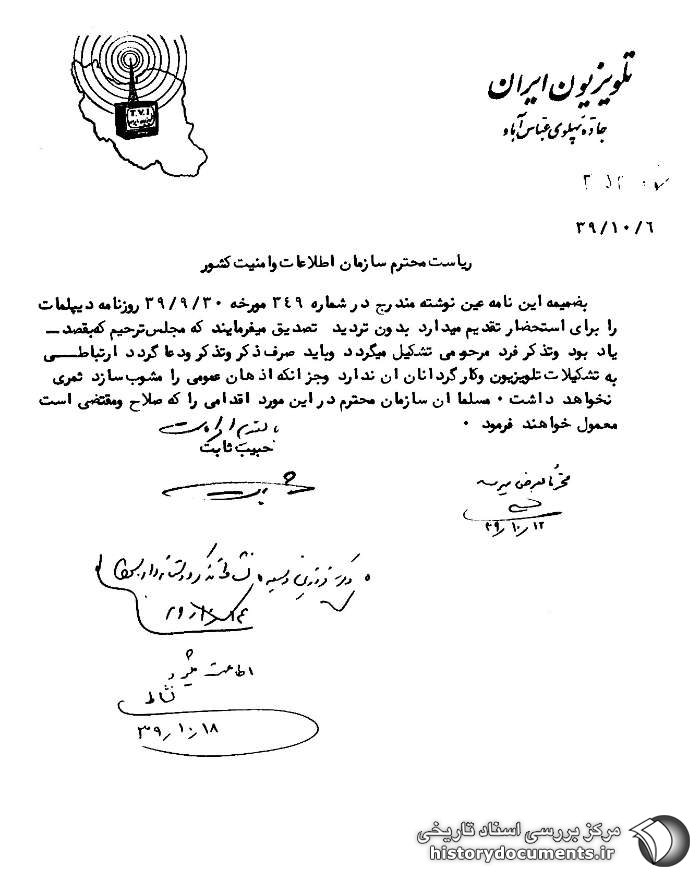 T.V.I
تلویزیون ایران
جاده پهلوی عباس آباد
۳۹/۱۰/۶
ریاست محترم سازمان اطلاعات وامنیت کشور
بضمیمه این نامه عین نوشته مندرج در شماره ۳۴۹ مورخه ۳۹/۹/۳۰ روزنامه دیپلمات
را برای استحضار تقدیم میدارد بدون تردید تصدیق میفرمایند که مجلس ترحیم که بقصد
یاد بود وتذکر فرد مرحومی تشکیل میگردد وباید صرف ذکر وتذکر ودعا گردد ارتباطی
به تشکیلات تلویزیون وکارگردانان ان ندارد وجز انکه اذهان عمومی را مشوب سازد ثمری
نخواهد داشت ۰ مسلما ان سازمان محترم در این مورد اقدامی را که صلاح ومقتضی است
معمول خواهند فرمود ۰
با تقدیم احترامات
حبیب ثابت
محترماً بعرض میرسد
۳۹/۱۰/۱۲
۳۹/۱۰/۱۸
مرکز بررسی اسناد تاریخی
historydocuments.ir